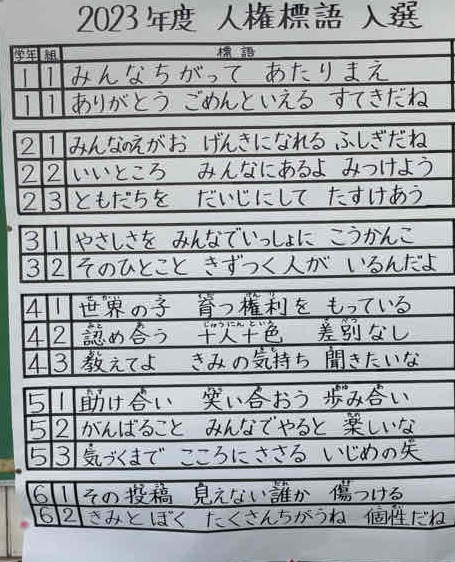 2023年度 人権標語 入選
学年 組 標語
1 1 みんなちがって あたりまえ
1 1 ありがとう ごめんといえる すてきだね
2 1 みんなのえがお げんきになれる ふしぎだね
2 2 いいところ みんなにあるよ みつけよう
2 3 ともだちを だいじにして たすけあう
3 1 やさしさを みんなでいっしょに こうかんこ
3 2 そのひとこと きずつく人が いるんだよ
4 1 世界の子 育つ権利を もっている
4 2 認め合う 十人十色 差別なし
4 3 教えてよ きみの気持ち 聞きたいな
5 1 助け合い 笑い合おう 歩み合い
5 2 がんばること みんなでやると 楽しいな
5 3 気づくまで こころにささる いじめの矢
6 1 その投稿 見えない誰か 傷つける
6 2 きみとぼく たくさんちがうね 個性だね